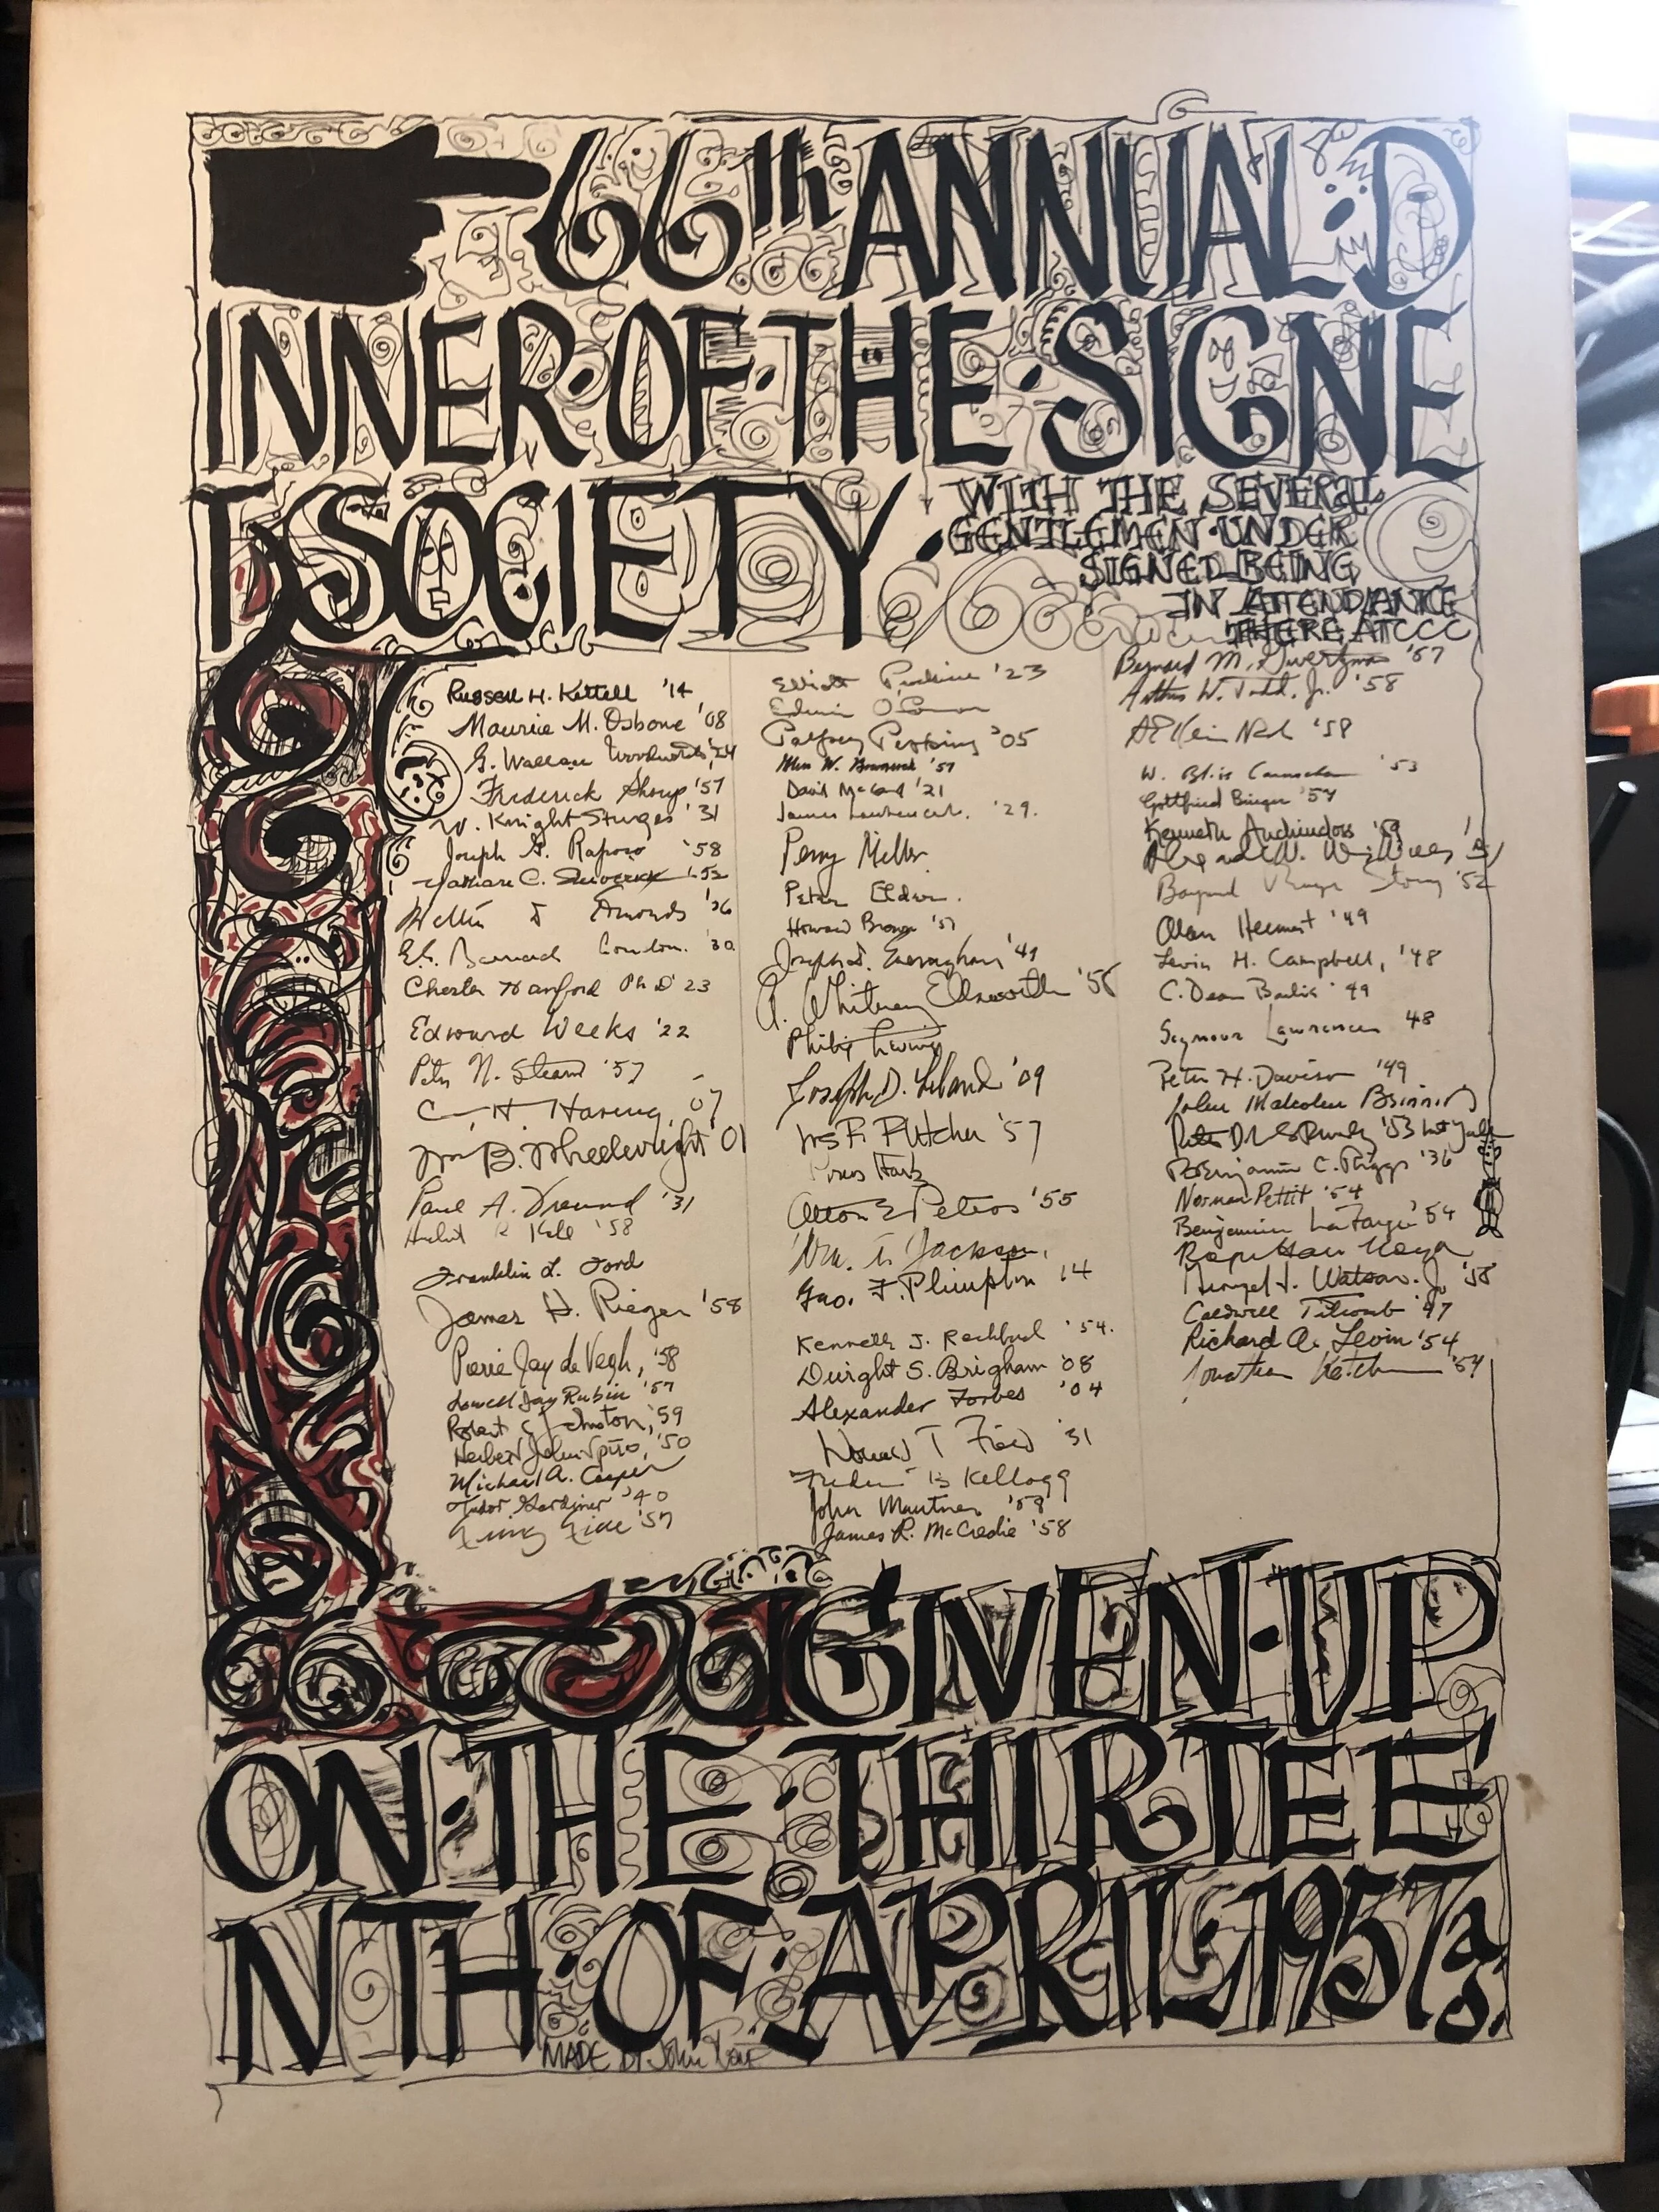 66th ANNUAL D
INNER·OF·THE·SIGNE
T SOCIETY·
WITH THE SEVERAL
GENTLEMEN·UNDER
SIGNED BEING
IN ATTENDANCE
THERE AT CCC
Russell H. Kettell '14
Maurice M. Osborne '08
G. Wallace Woodworth '24
Frederick Shoup '57
W. Knight Sturges '31
Joseph G. Raposo '58
C. '52
'36
Barnard '30
Chester Hanford Ph D '23
Edward Weeks '22
Peter N. Stearns '57
C. H. Haring, '07
Wm B. Wheelwright '01
Paul A. Freund '31
'58
Franklin L. Ford
James H. Rieger '58
Pierre Jay de Vegh, '58
Lowell Jay Rubin '57
Robert Johnston, '59
Herbert John Spiro, '50
Michael A. Cooper
Tudor Gardiner '40
'57
Elliott Perkins '23
Edwin O'Connor
Palfrey Perkins '05
W. '57
David McCord '21
James Lawrence Jr. '29.
Perry Miller
Peter Elder.
Howard Brown '57
Joseph '41
A. Whitney Ellsworth '56
Philip
Joseph D. Leland '09
Fletcher '57
Alton E Peters '55
Wm. Jackson,
Geo. F. Plimpton 14
Kenneth J. '54.
Dwight S. Brigham '08
Alexander Forbes '04
Howard T Field '31
Kellogg
John Mautner '58
James R. McCredie '58
Bernard M. Gwertzman '57
Arthur W. Todd, Jr. '58
'58
W. Bliss Carnochan '53
Gottfried Binger '57
Kenneth Auchincloss '59
W.
'52
Alan Heimert '49
Levin H. Campbell, '48
C. Dean '49
Seymour Lawrence 48
Peter H. Davison '49
John Malcolm Brinnin
'53
Benjamin C. Riggs '36
Norman Pettit '54
Benjamin LaFarge '54
Watson. Jr. '58
Caldwell Titcomb '47
Richard A. Levin '54
Jonathan Ketchum '54
GIVEN·UP
ON·THE·THIRTEE
NTH·OF·APRIL 1957 a.
D.
MADE BY John